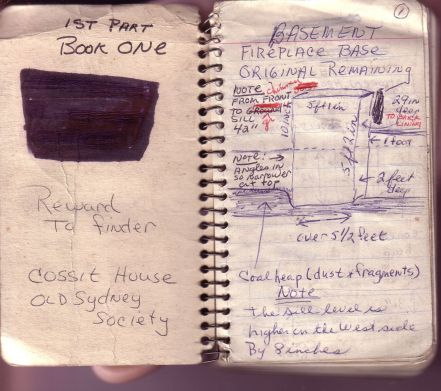 1ST PART
BOOK ONE
Reward
To finder
COSSIT HOUSE
OLD Sydney
Society
1
BASEMENT
FIREPLACE BASE
ORIGINAL REMAINING
NOTE
FROM FRONT
TO
SILL
42"
10 inch
5ft 1 in
5ft 2 in
29 in
deep
TO BACK
LINING
1 foot
2 feet
deep
NOTE:
ANGLES IN
SO NARROWER
at top
over 5 1/2 feet
Coal heap (dust + fragments)
Note
The sill level is
higher on the west side
By 8 inches